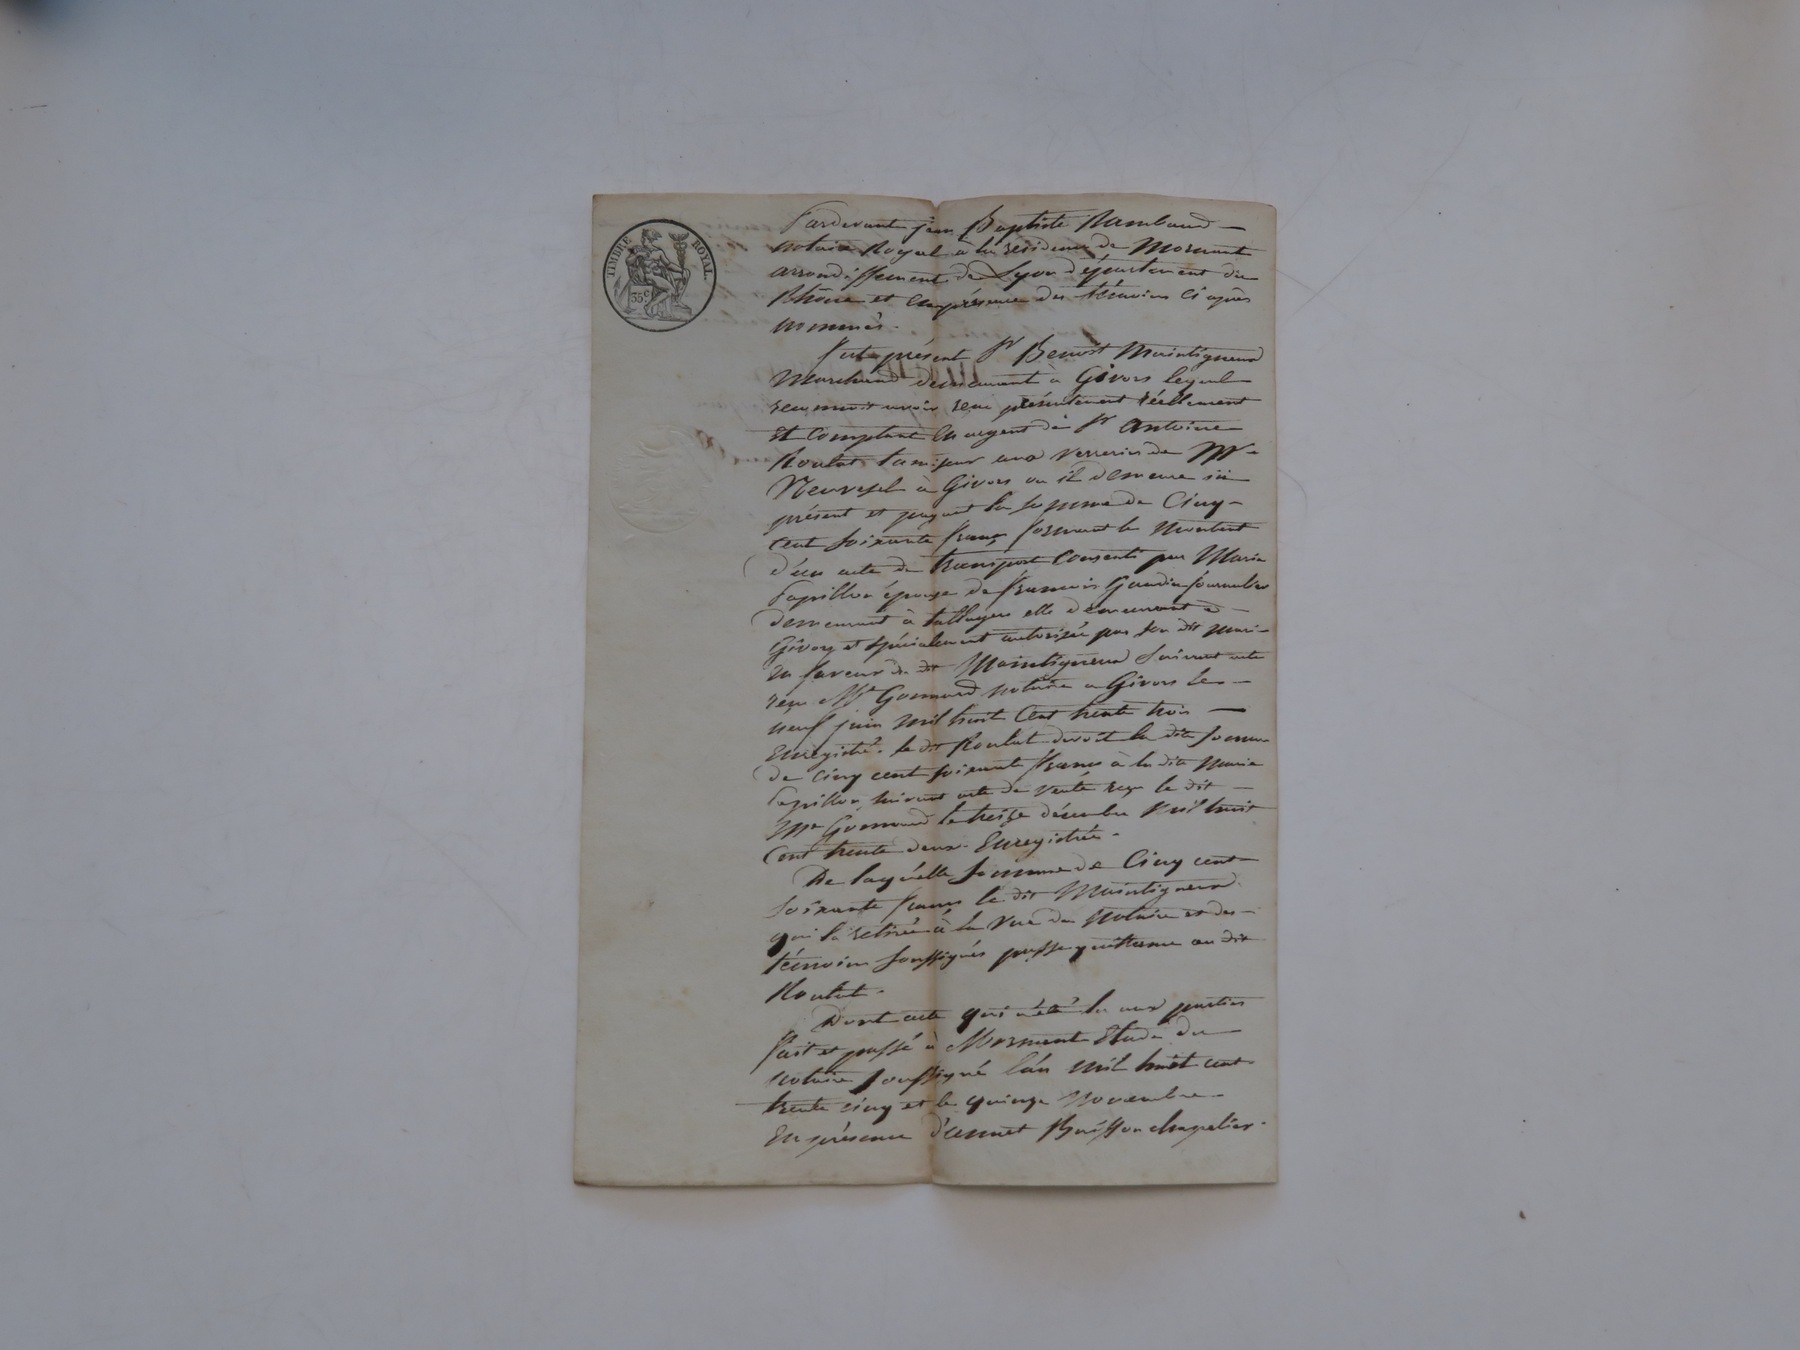 TIMBRE ROYAL.
35c
Pardevant jean Baptiste Rambaud
notaire Royal à la residence de Mornant
arrondissement de Lyon département du
Rhône et en présence des témoins ci après
nommés.
fut présent Sr Benoit Maintigneux
Marchand demeurant à Givors lequel
reconnoit avoir recu présentement réellement
et comptant en argent de Sr Antoine
Roulat tamiseur aux verreries de Mr
Neuvesel à Givors ou il demeure ici
présent et payant la somme de Cinq
cent soixante francs formant le montant
d'un acte de transport consenti par Marie
Papillon épouse de francois Gaudin journalier
demeurant à elle demeurant à
Givors et spécialement autorisée par son dit mari
en faveur du dit Maintigneux suivant acte
reçu Me Gonnard notaire a Givors le
neuf juin mil huit Cent trente trois
Enregistré. le dit Roulat devoit la dite somme
de cinq cent soixante francs à la dite Marie
Papillon, suivant acte de vente reçu le dit
Me Gonnard le treize décembre mil huit
Cent trente deux. Enregistrée.
De laquelle somme de Cinq cent
soixante francs le dit Maintigneux
qui l'a retirée à la vue du notaire et des
témoins soussignés passe quittance au dit
Roulat.
Dont acte qui a été lu aux parties
fait et passé à Mornant Etude du
notaire soussigné l'an mil huit cent
trente cinq et le quinze novembre
En présence d'annet Buisson chapelier.